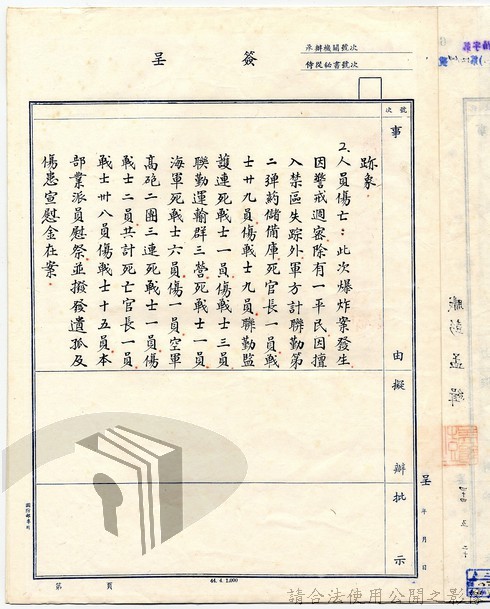 簽呈
承辦機關號次
侍從秘書號次
號次
事由
擬辦
批示
跡象。
2.人員傷亡：此次爆炸案發生
因警戒週密除有一平民因擅
入禁區失踪外軍方計聯勤第
二彈葯儲備庫死官長一員戰
士廿九員傷戰士九員聯勤監
護連死戰士一員傷戰士三員
聯勤運輸群三營死戰士一員
海軍死戰士六員傷一員空軍
高砲二團三連死戰士一員傷
戰士二員共計死亡官長一員
戰士卅八員傷戰士十五員本
部業派員慰祭並擬發遺孤及
傷患宣慰金在案。
呈
年月日
第 頁
44. 4. 2,000
請合法使用公開之影像